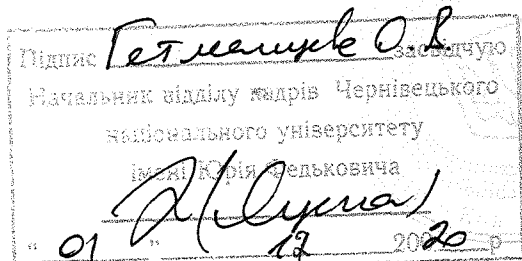 Підпис Гетманцев О.В. засвідчую
Начальник відділу кадрів Чернівецького
національного університету
імені Юрія Федьковича
" 01 " 12 200 20 р